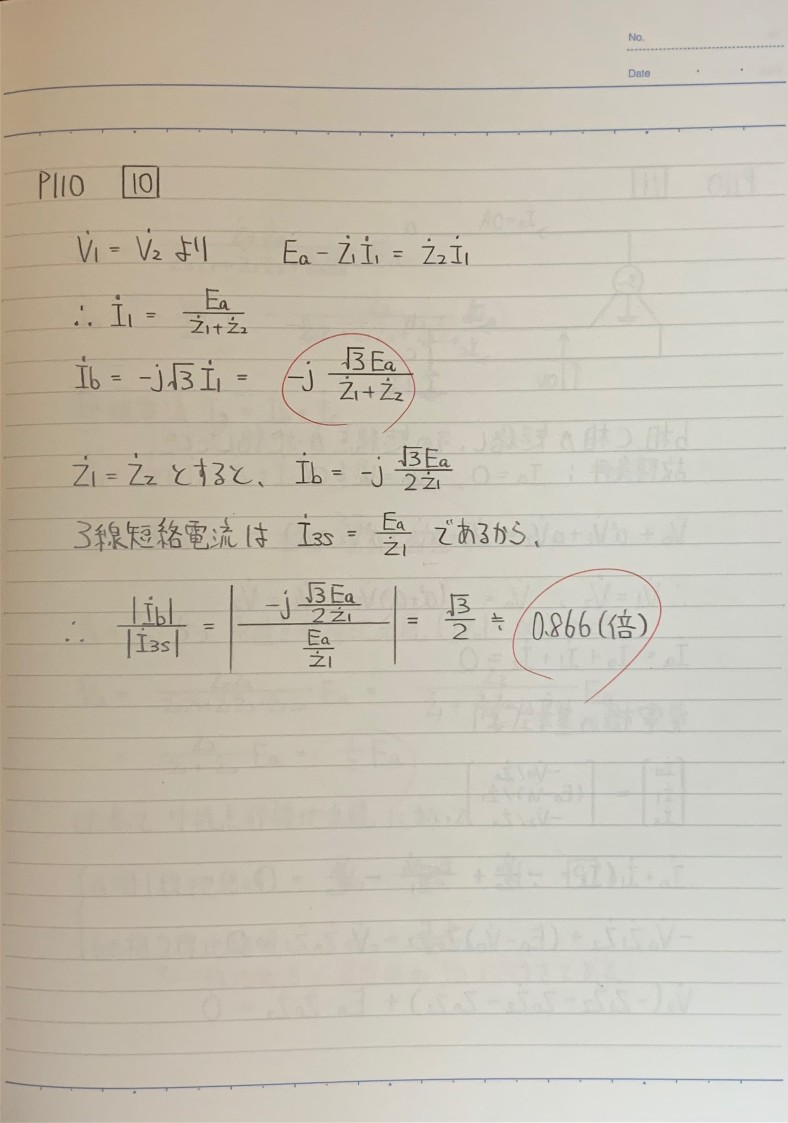 No.
Date
P110 10
V̇₁ = V̇₂ より Ėa − Ż₁İ₁ = Ż₂İ₁
∴ İ₁ = Ėa / (Ż₁+Ż₂)
İb = −j√3 İ₁ = −j √3 Ėa / (Ż₁+Ż₂)
Ż₁ = Ż₂ とすると、 İb = −j √3Ėa / 2Ż₁
3線短絡電流は İ3s = Ėa / Ż₁ であるから、
∴ |İb| / |İ3s| = | (−j √3Ėa / 2Ż₁) / (Ėa / Ż₁) | = √3 / 2 ≒ 0.866(倍)